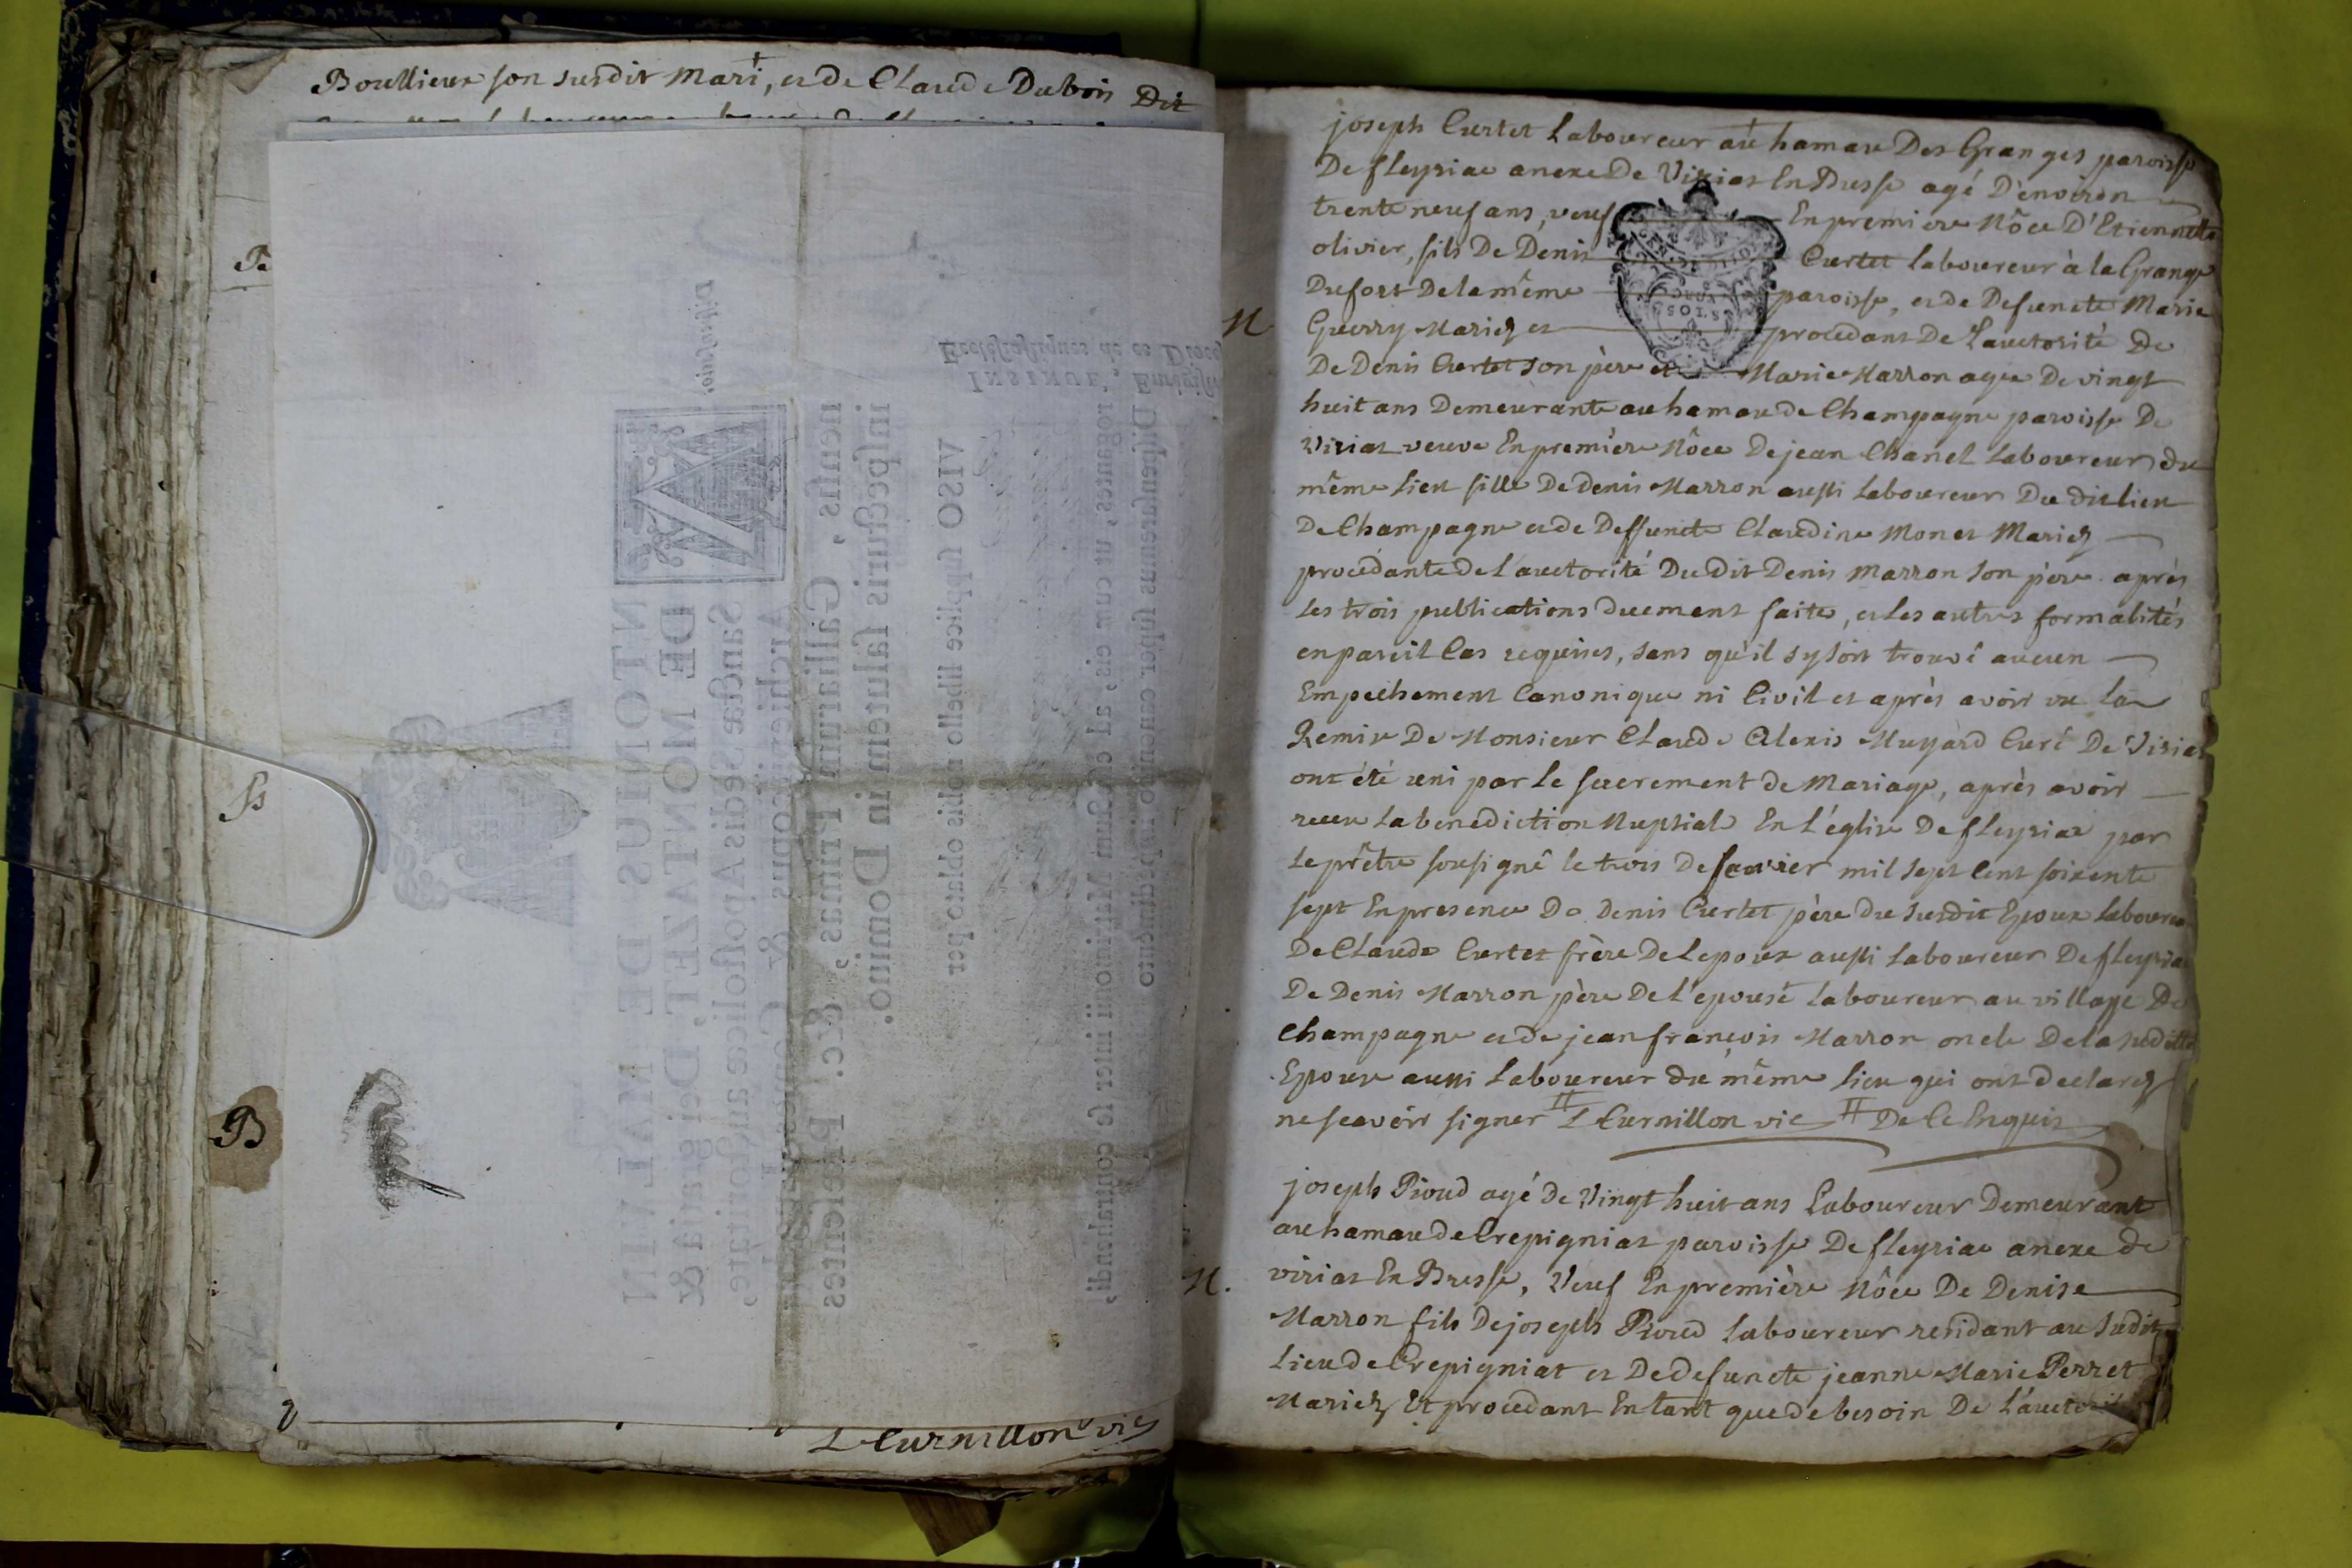 Boullieur son susdit Mari, et de Claude Dubois Dit
L Curnillon vic
joseph Curtet Laboureur au hamau Des Granges paroisse
De fleyriac anexe De Viriat En Bresse agé D'environ
trente neuf ans, veuf En premiere Nôce D'Etiennette
olivier, fils De Denis Curtet Laboureur à la Grange
Du fort De la même paroisse, et de Defuncte Marie
Guerry Mariez et procedant De L'auctorité De
De Denis Curtet son père et Marie Marron agée De vingt
huit ans Demeurante au hamau de Champagne paroisse De
Viriat veuve En première Nôce De jean Chanel Laboureur du
même lieu fille De denis Marron aussi Laboureur Du dit lieu
De Champagne et de Deffuncte Claudine Monet Mariez
procédante de L'auctorité Du dit Denis Marron son père. après
Les trois publications duement faites, et Les autres formalités
en pareil Cas requises, sans qu'il s'y soit trouvé aucun
Empêchement Canonique ni Civil et après avoir vu la
Remise De Monsieur Claude Alexis Muyard Curé De Viriat
ont été uni par Le sacrement de Mariage, après avoir
receu La benediction Nuptiale En L'église De fleyriac par
Le prêtre sousigné le trois De fevrier mil sept Cent soixente
sept En presence De Denis Curtet père du susdit Epoux Laboureur
De Claude Curtet frère De L'epoux aussi Laboureur De fleyriac
De Denis Marron père De L'epouse Laboureur au village De
Champagne et de jean françois Marron oncle De la suditte
Epouse aussi Laboureur du même lieu qui ont declarez
ne scavoir signer # L Curnillon vic # De Ce Enquis
joseph Pioud agé de Vingt huit ans Laboureur Demeurant
au hamau de Crepigniat paroisse De fleyriac anexe de
viriat En Bresse, Veuf En première Nôce De Denise
Marron fils De joseph Pioud Laboureur residant au sudit
Lieu de Crepigniat et De defuncte jeanne Marie Perret
Mariez Et procedant En tant que de besoin De L'auctorité
M
M.
B
NTONIUS DE MALVIN
DE MONTAZET, Dei gratiâ &
Sanctæ Sedis Apostolicæ auctoritate,
Archiepiscopus &
nensis, Galliarum Primas, &c. Præsentes
inspecturis salutem in Domino.
VISO supplice libello nobis oblato per
INSINUÉ
Ecclésiastiques de ce Diocè